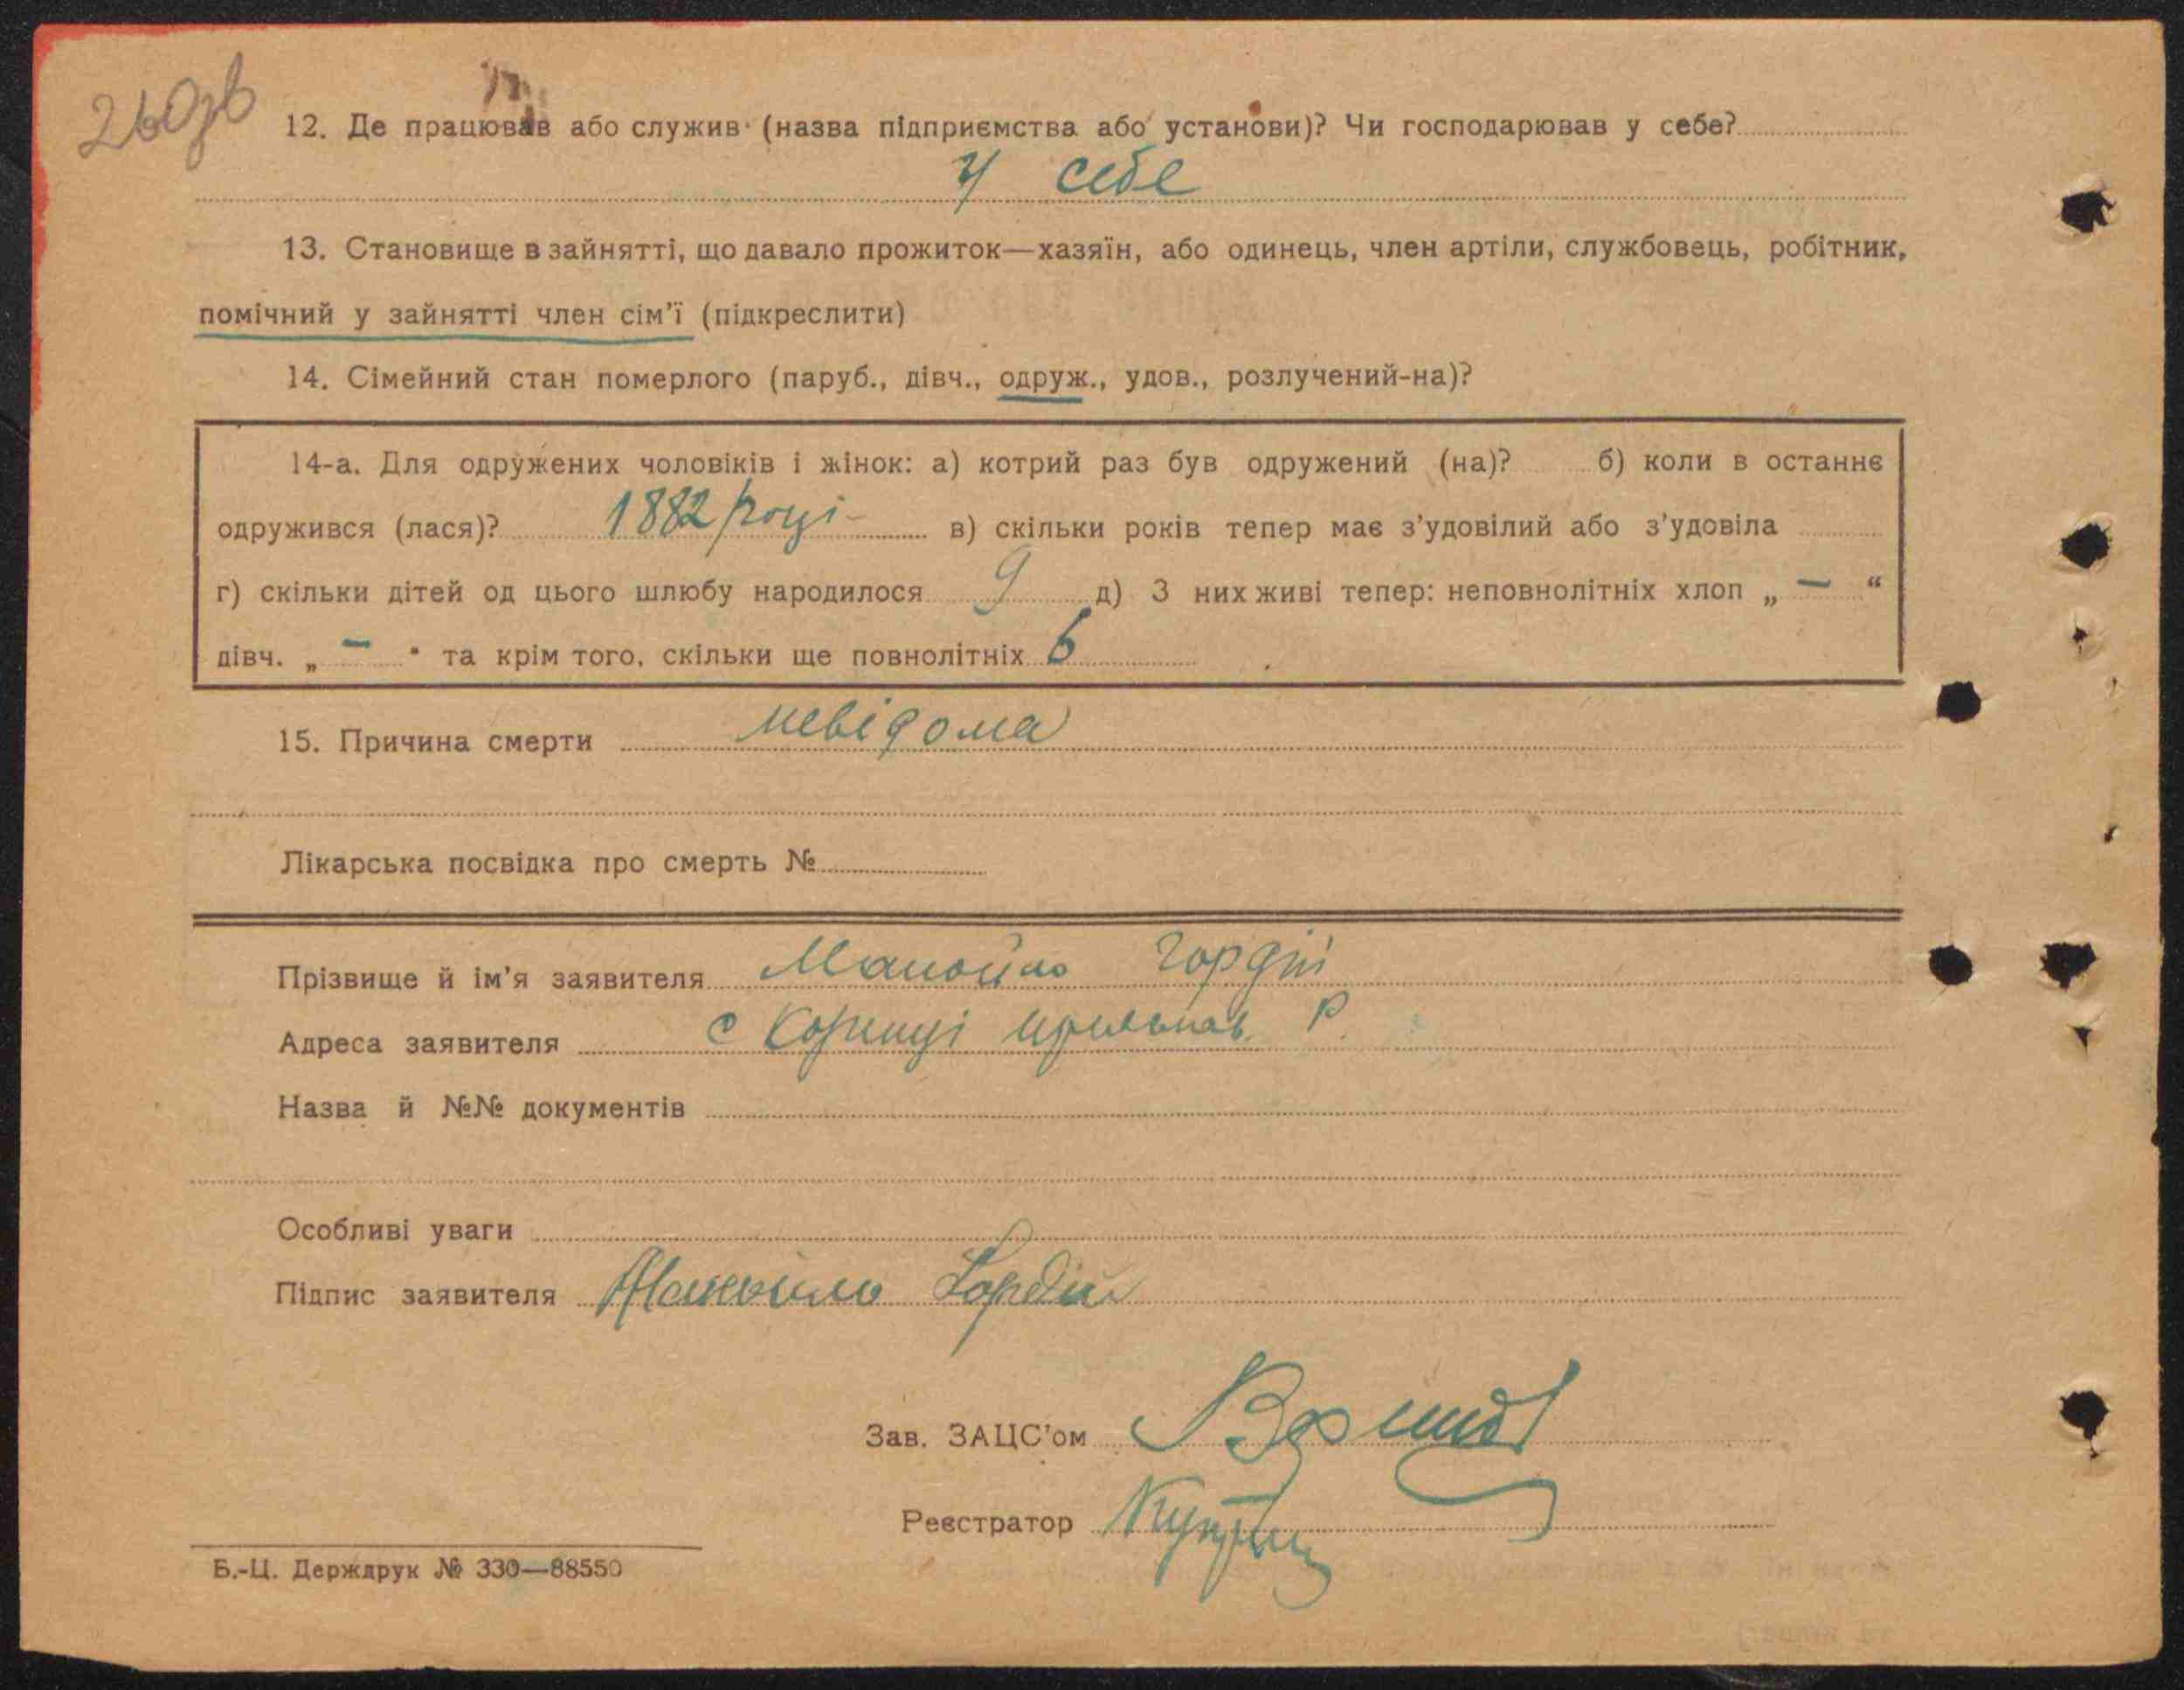 260зв
12. Де працював або служив (назва підприємства або установи)? Чи господарював у себе?
У себе
13. Становище в зайнятті, що давало прожиток—хазяїн, або одинець, член артіли, службовець, робітник,
помічний у зайнятті член сім'ї (підкреслити)
14. Сімейний стан померлого (паруб., дівч., одруж., удов., розлучений-на)?
14-а. Для одружених чоловіків і жінок: а) котрий раз був одружений (на)? б) коли в останнє
одружився (лася)? 1882 році в) скільки років тепер має з'удовілий або з'удовіла
г) скільки дітей од цього шлюбу народилося 9 д) З них живі тепер: неповнолітніх хлоп „ — “
дівч. „ — “ та крім того, скільки ще повнолітніх 6
15. Причина смерти невідома
Лікарська посвідка про смерть №
Прізвище й ім'я заявителя Манойло Гордій
Адреса заявителя с Коринці Р.
Назва й №№ документів
Особливі уваги
Підпис заявителя Манойло Гордій
Зав. ЗАЦС'ом
Реєстратор
Б.-Ц. Держдрук № 330—88550